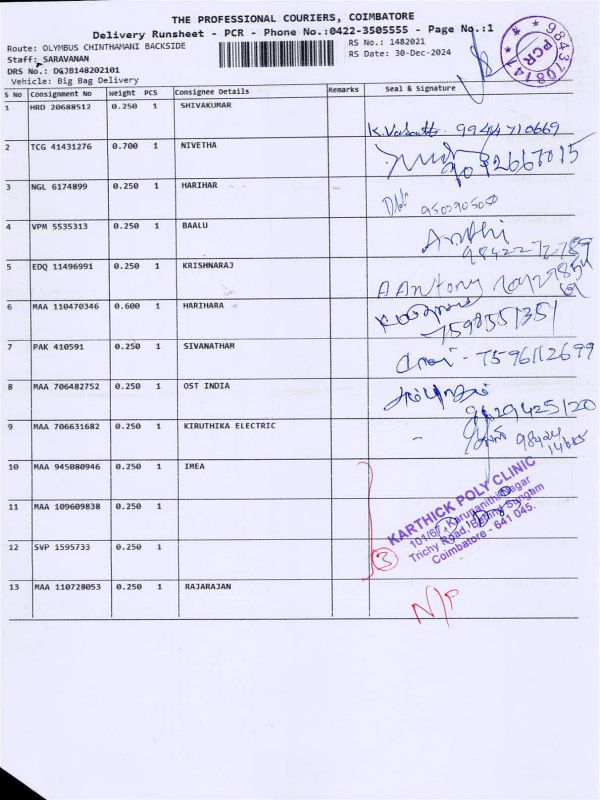 THE PROFESSIONAL COURIERS, COIMBATORE
Delivery Runsheet - PCR - Phone No.:0422-3505555 - Page No.:1
Route: OLYMBUS CHINTHAMANI BACKSIDE
RS No.: 1482021
Staff: SARAVANAN
RS Date: 30-Dec-2024
DRS No.: DGJB148202101
Vehicle: Big Bag Delivery
9843708141
PCR
S No Consignment No Weight PCS Consignee Details Remarks Seal & Signature
1 HRD 20688512 0.250 1 SHIVAKUMAR
9944710669
2 TCG 41431276 0.700 1 NIVETHA
3 NGL 6174899 0.250 1 HARIHAR
4 VPM 5535313 0.250 1 BAALU
5 EDQ 11496991 0.250 1 KRISHNARAJ
A Antony
6 MAA 110470346 0.600 1 HARIHARA
7598551351
7 PAK 410591 0.250 1 SIVANATHAM
7596112699
8 MAA 706482752 0.250 1 OST INDIA
9629425120
9 MAA 706631682 0.250 1 KIRUTHIKA ELECTRIC
10 MAA 945080946 0.250 1 IMEA
11 MAA 109609838 0.250 1
12 SVP 1595733 0.250 1
3
KARTHICK POLY CLINIC
Trichy Road,
Sungam
Coimbatore - 641 045.
13 MAA 110728053 0.250 1 RAJARAJAN
N/P